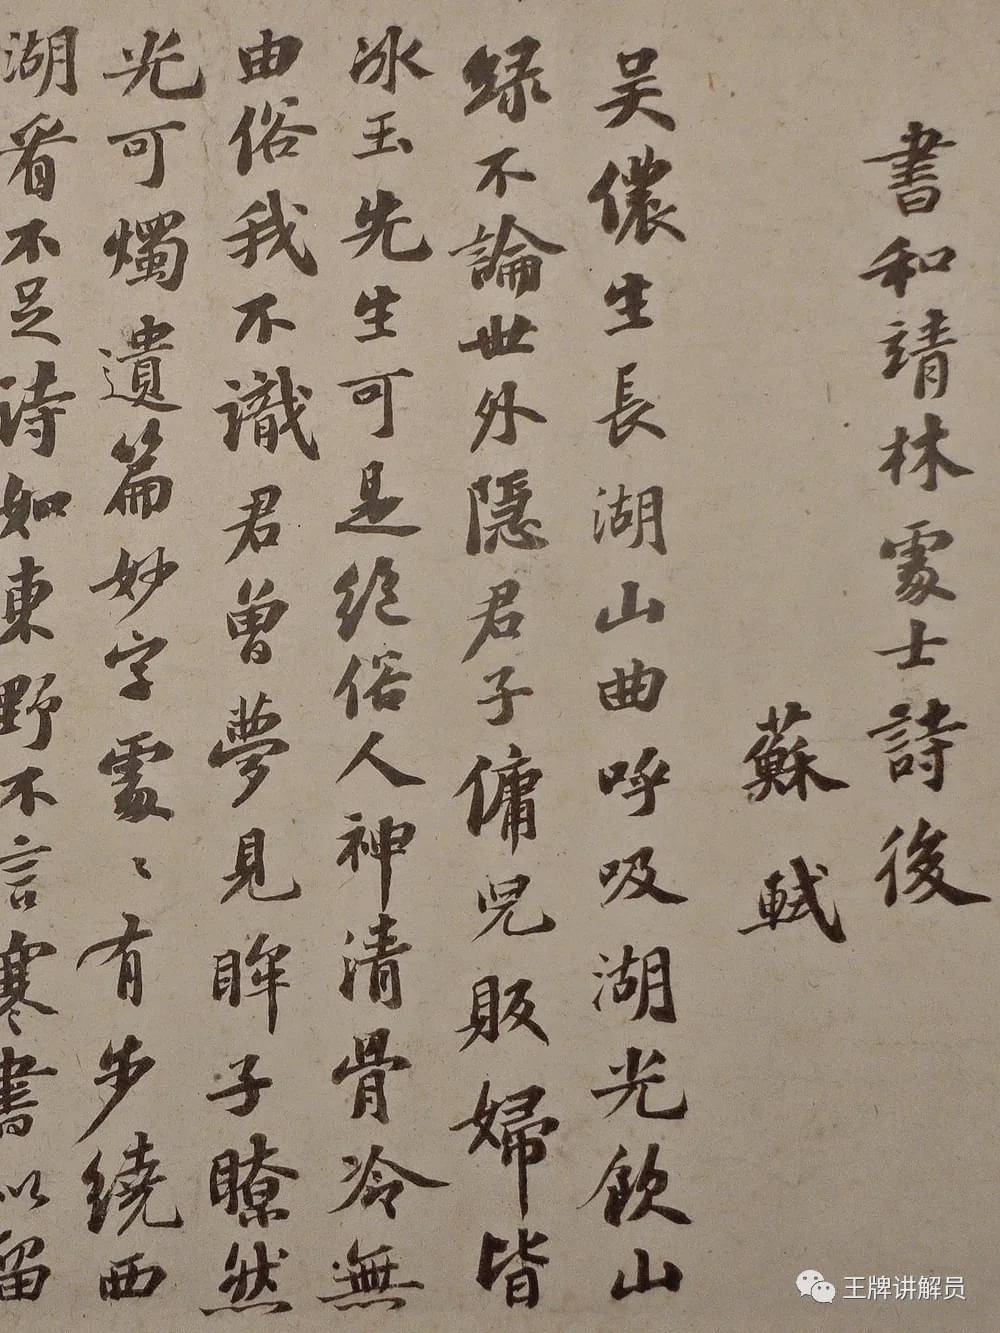 書和靖林處士詩後
蘇軾
吴儂生長湖山曲呼吸湖光飲山
緑不論世外隱君子傭兒販婦皆
冰玉先生可是絕俗人神清骨冷無
由俗我不識君曾夢見眸子瞭然
光可燭遺篇妙字處〻有步繞西
湖看不足詩如東野不言寒書似留
王牌讲解员